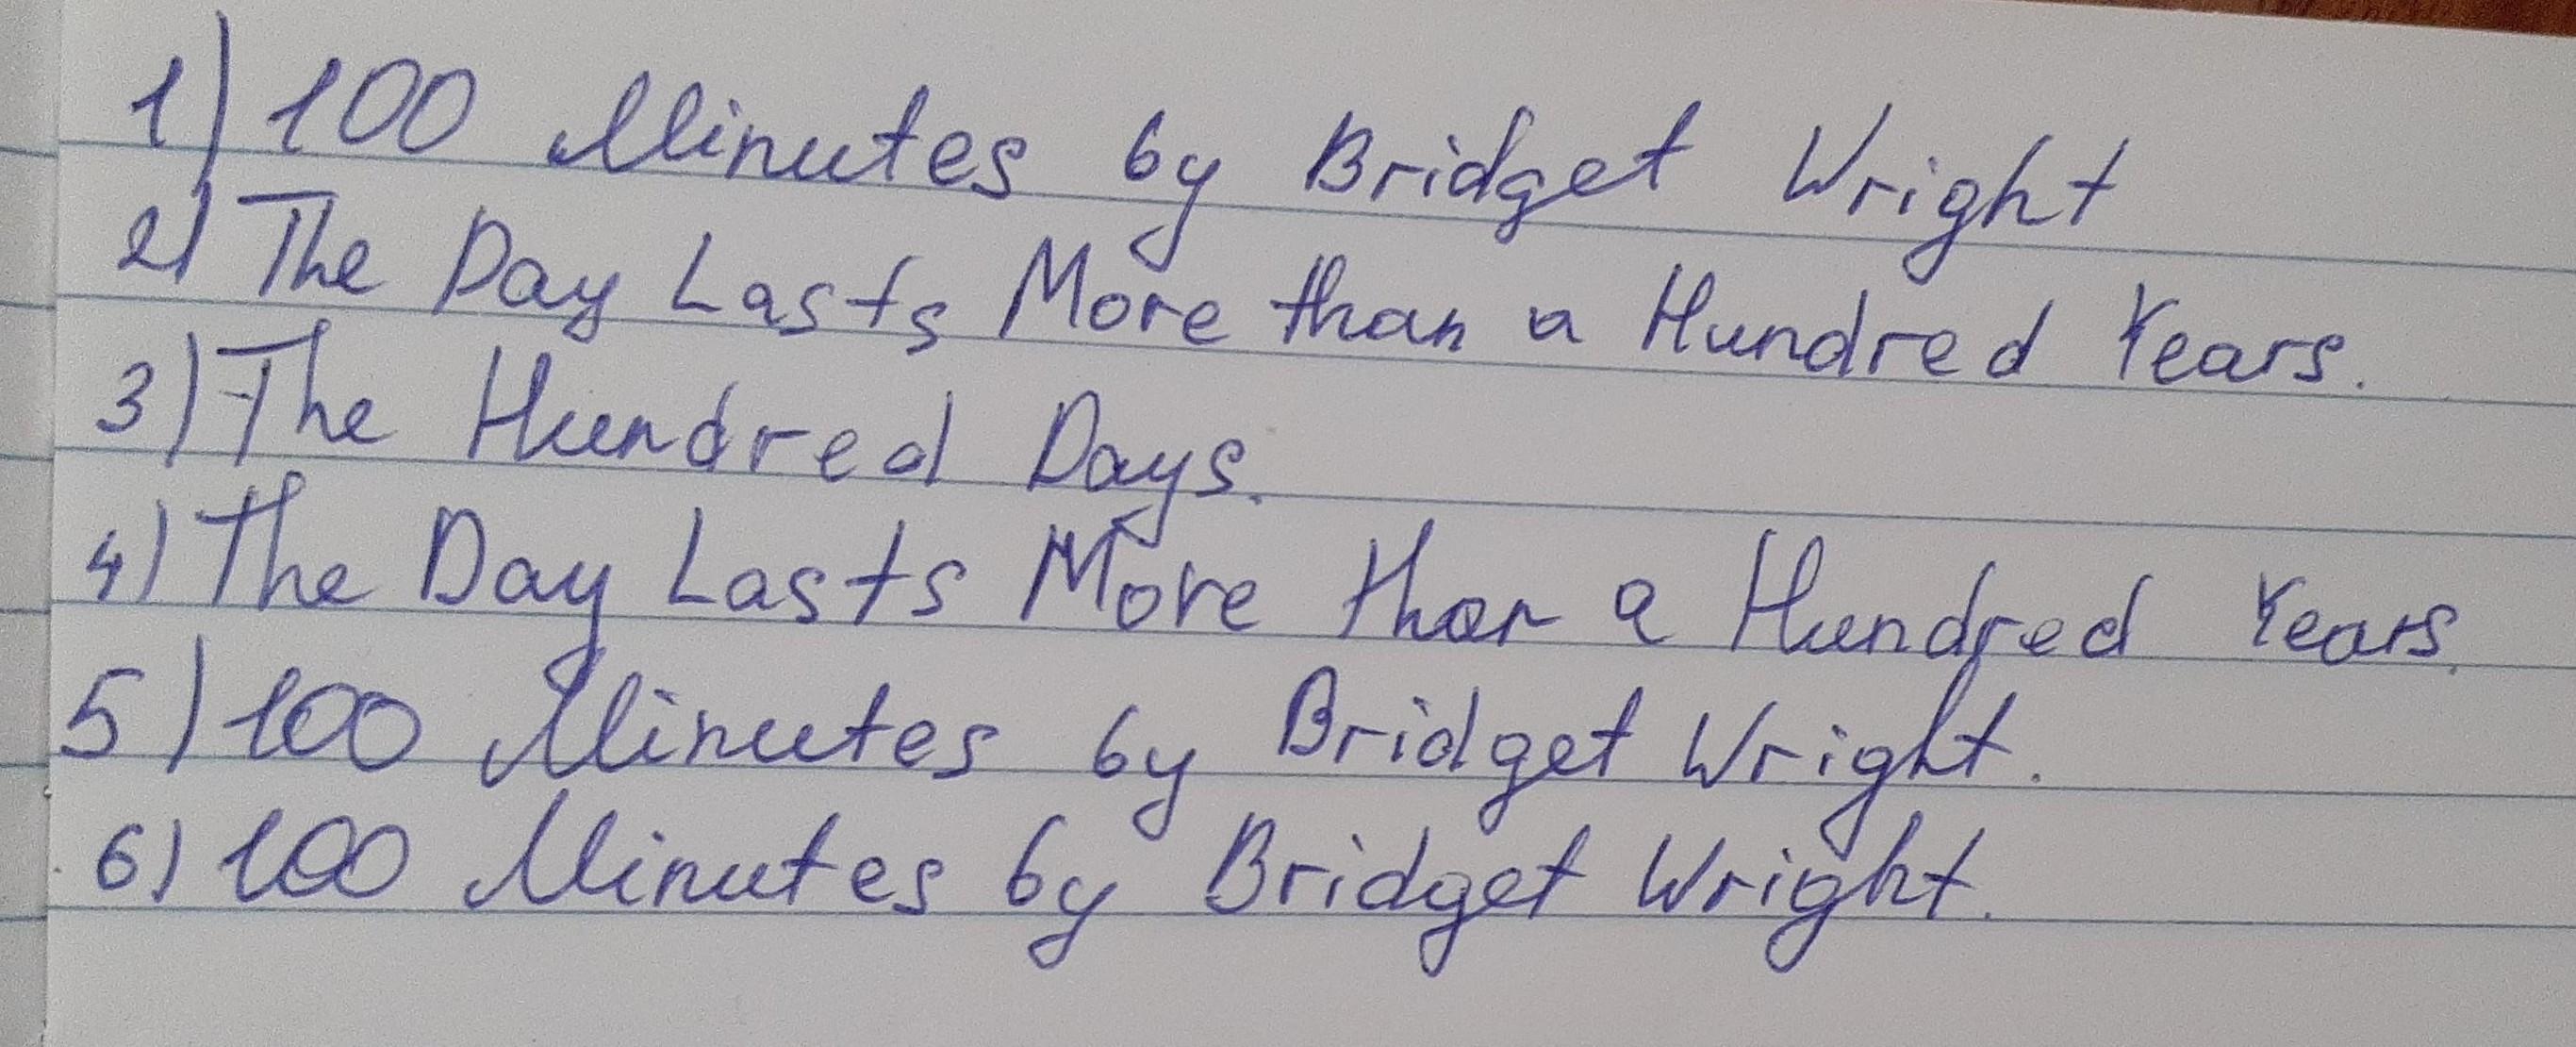 1) 100 Minutes by Bridget Wright
2) The Day Lasts More than a Hundred Years.
3) The Hundred Days.
4) The Day Lasts More than a Hundred Years.
5) 100 Minutes by Bridget Wright.
6) 100 Minutes by Bridget Wright.